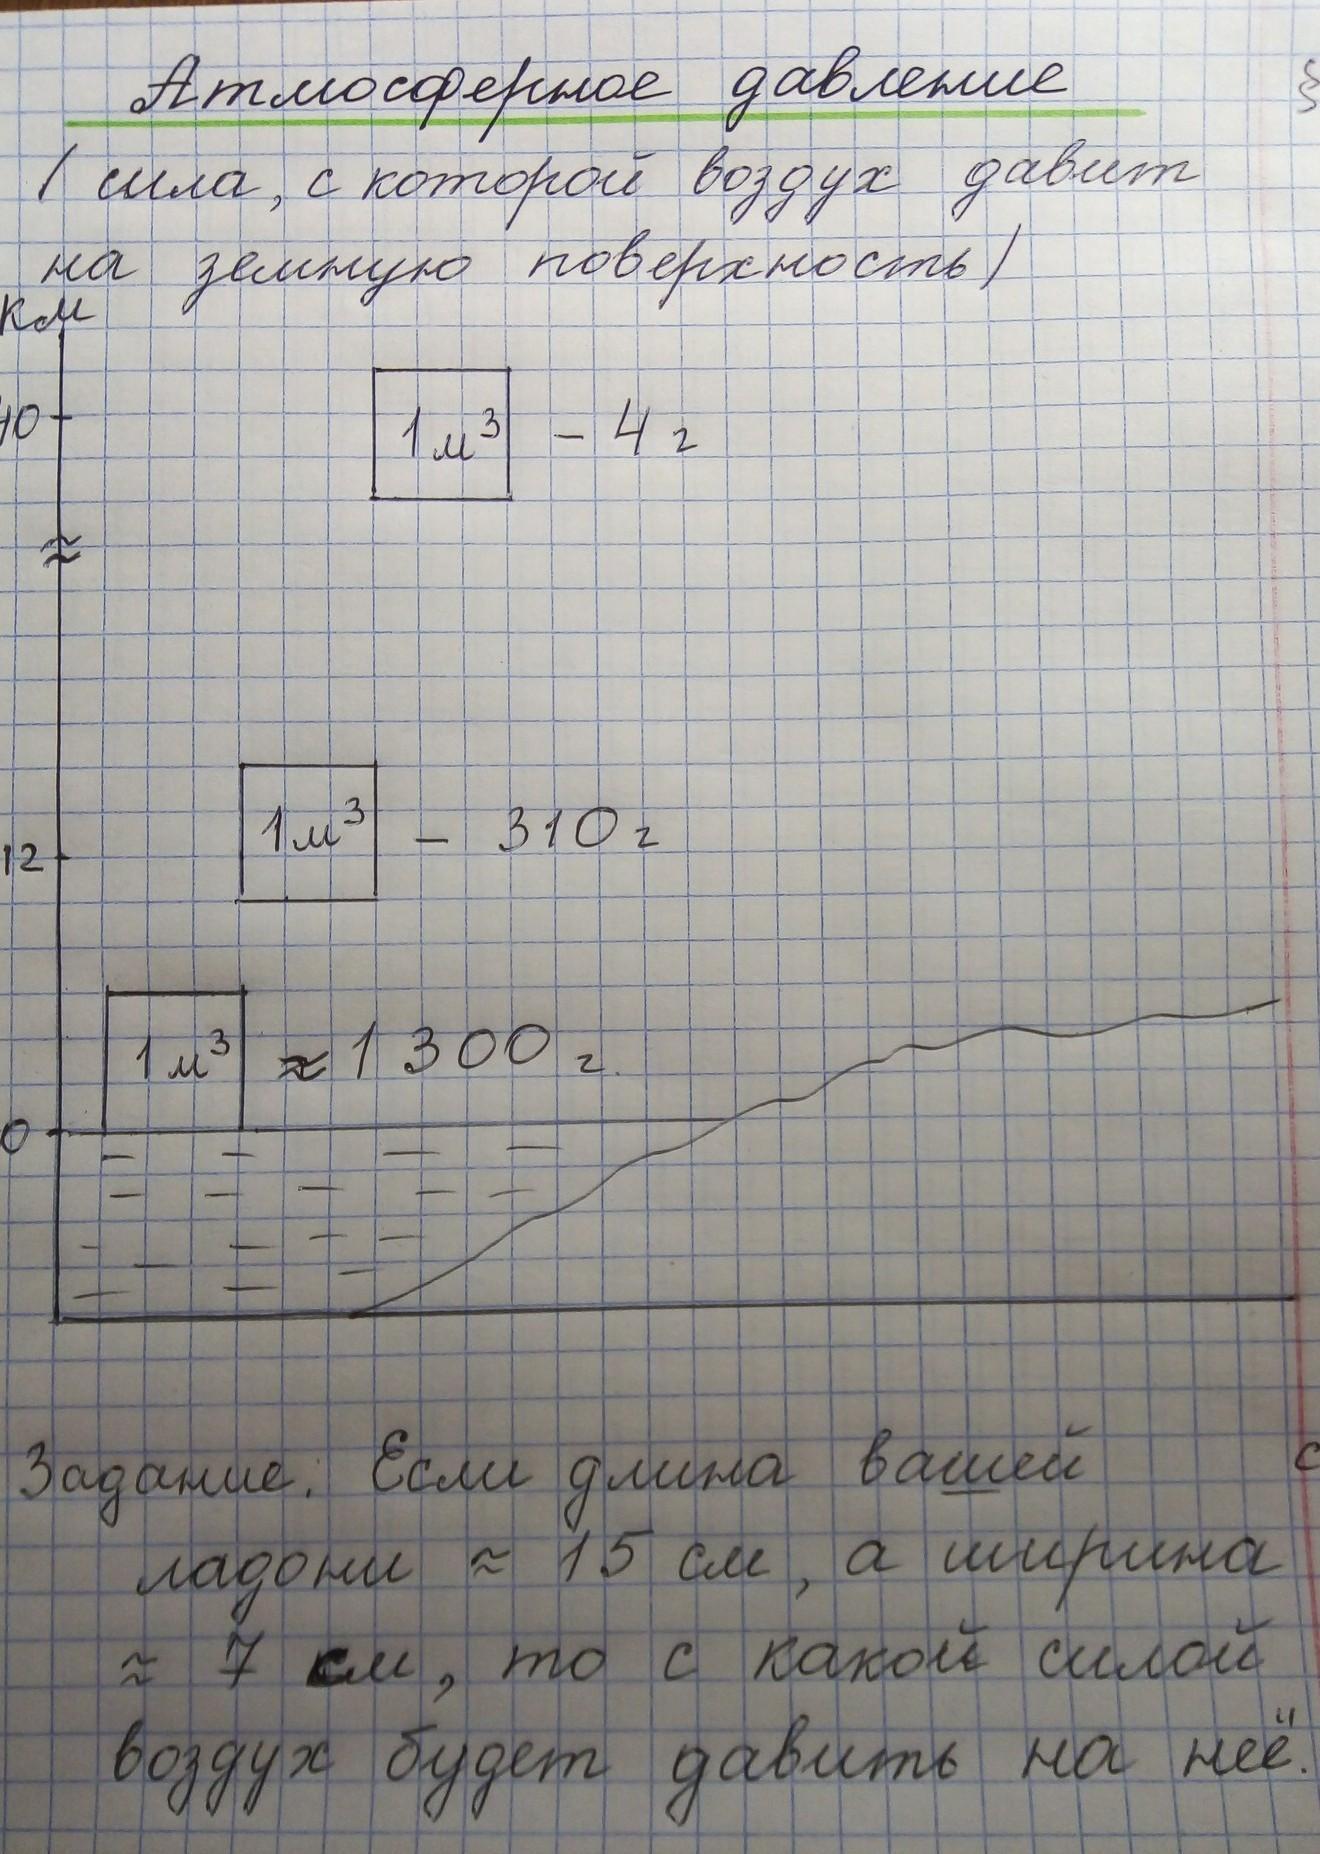 Атмосферное давление
/ сила, с которой воздух давит
на земную поверхность /
км
40
1 м³ - 4 г
12
1 м³ - 310 г
1 м³ ≈ 1 300 г.
0
Задание. Если длина вашей
ладони ≈ 15 см, а ширина
≈ 7 см, то с какой силой
воздух будет давить на неё.